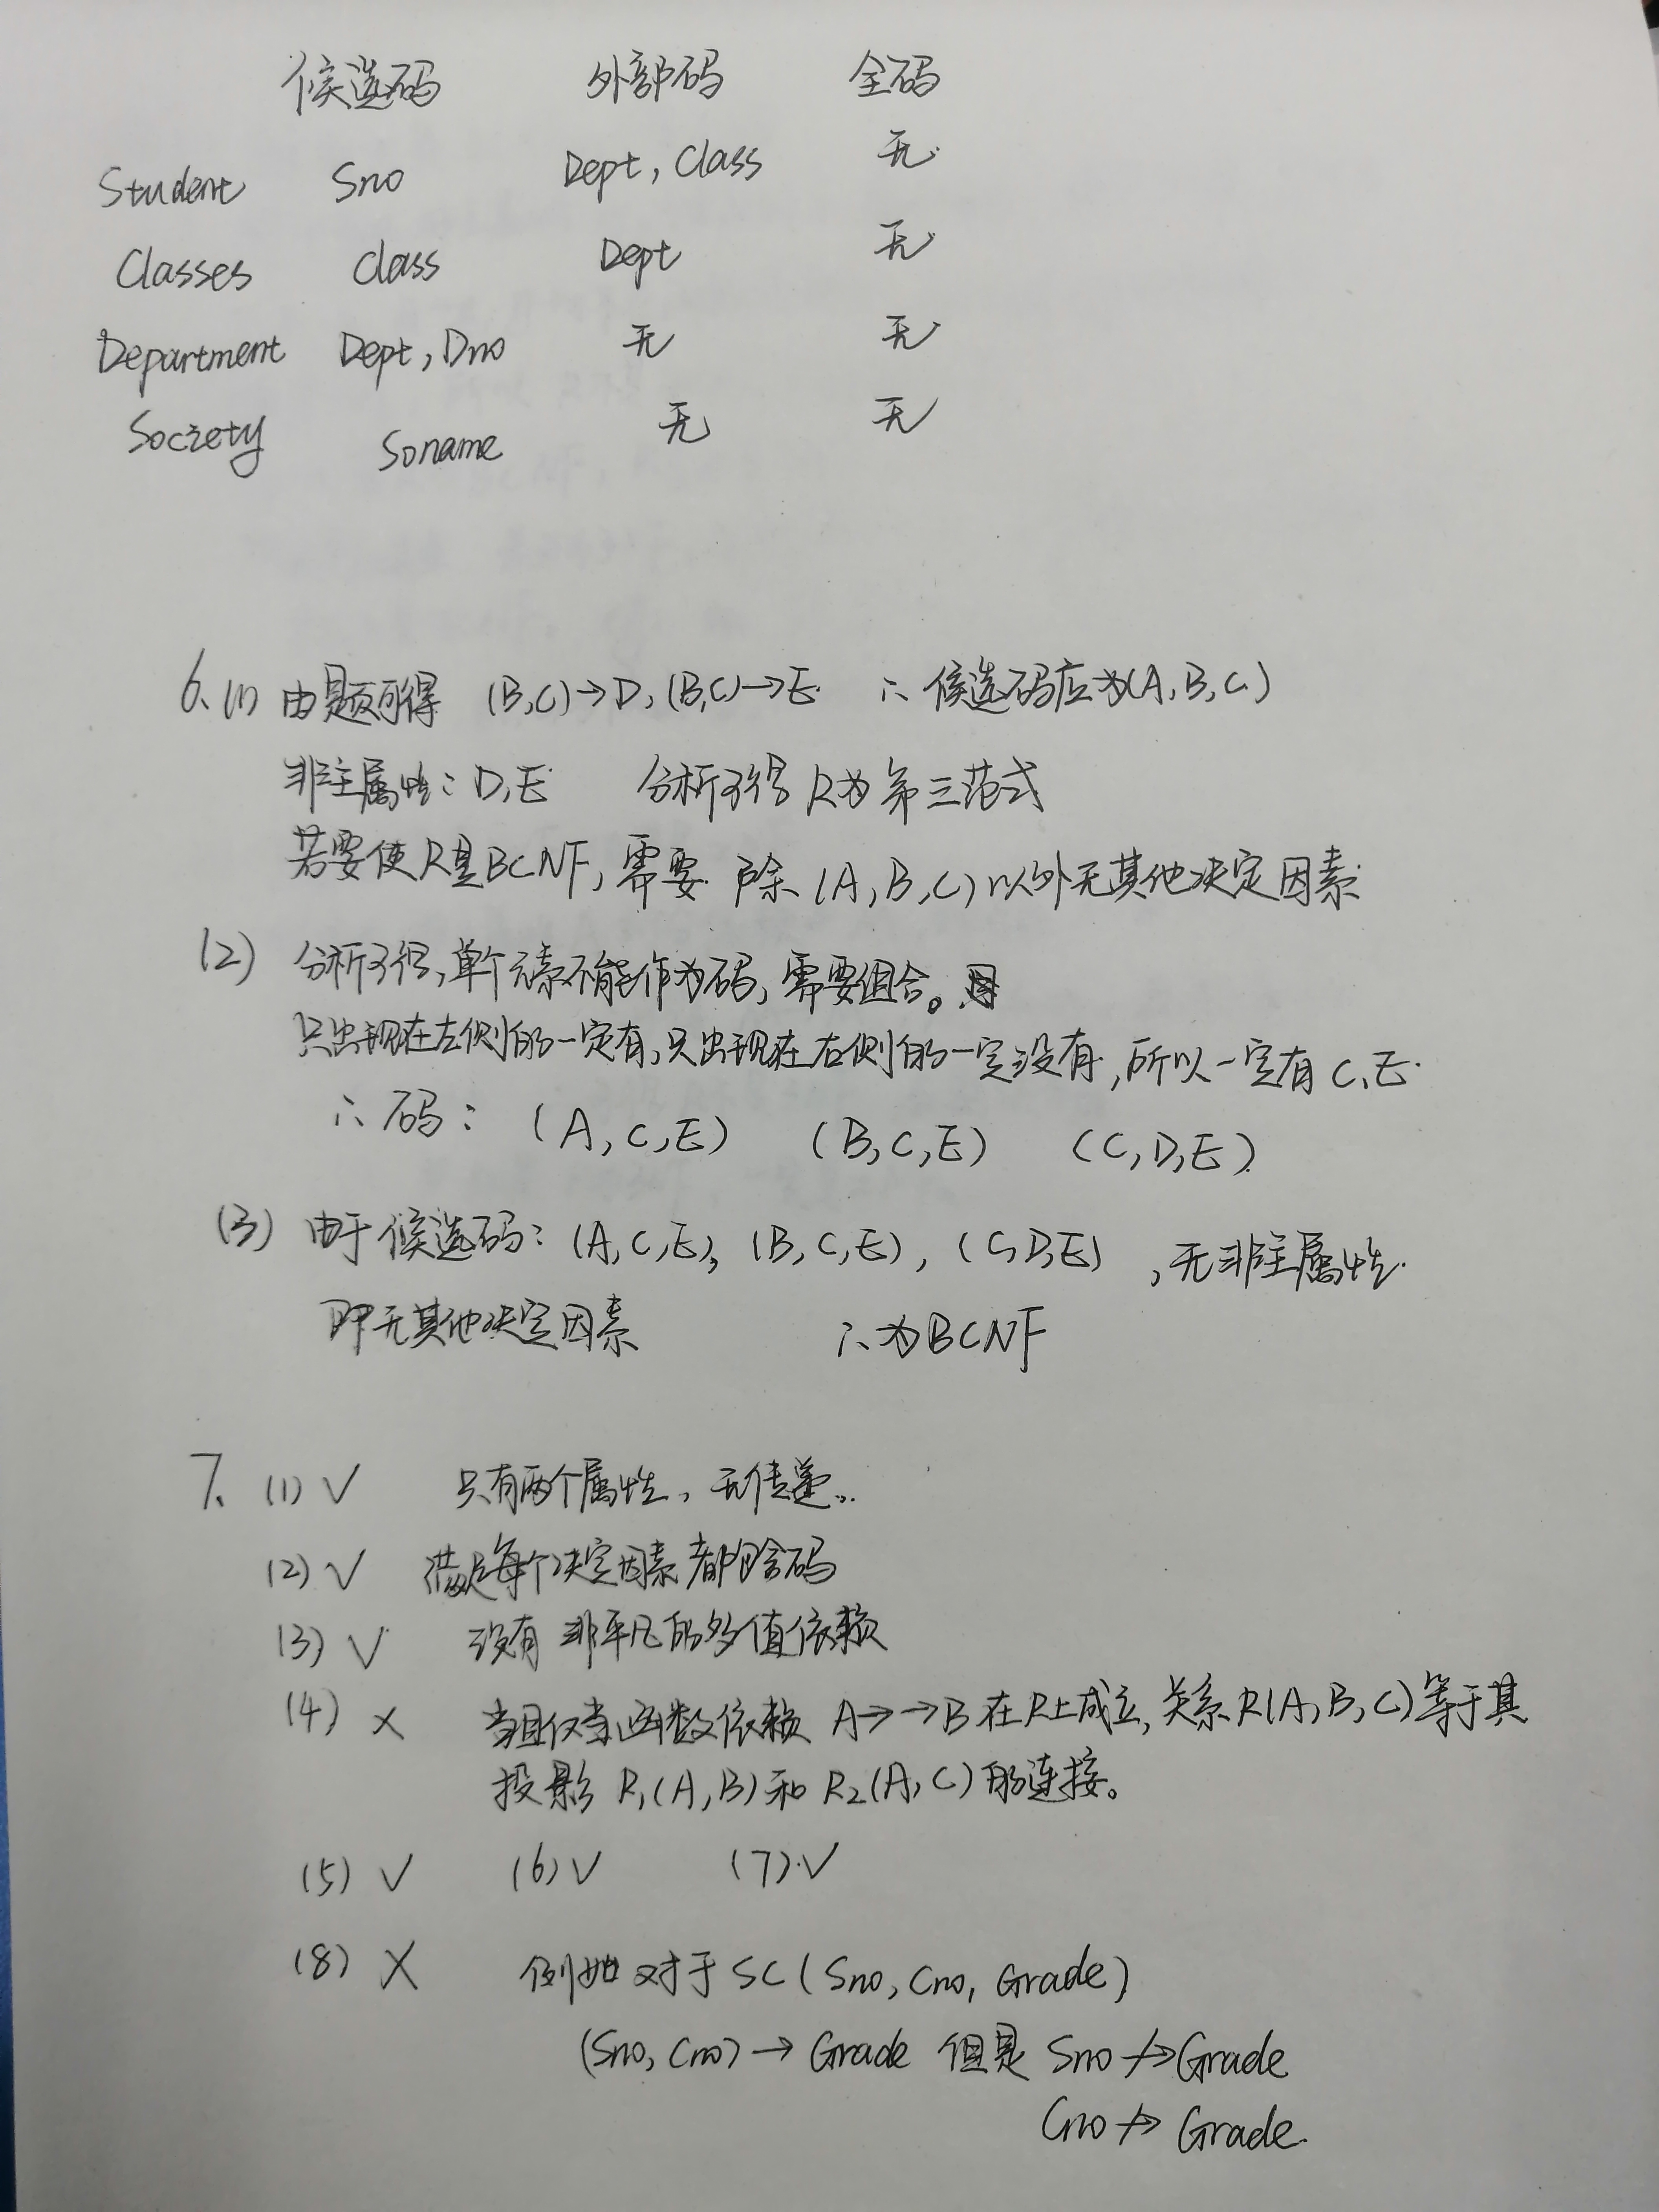 候选码 外部码 全码
Student Sno Dept, Class 无
Classes Class Dept 无
Department Dept, Dno 无 无
Society Soname 无 无
6、(1) 由题可得 (B,C)→D, (B,C)→E ∴ 候选码应为(A,B,C)
非主属性: D,E 分析可得 R为第三范式
若要使R是BCNF, 需要 除(A,B,C)以外无其他决定因素
(2) 分析可得, 单个元素不能作为码, 需要组合。
只出现在左侧的一定有, 只出现在右侧的一定没有, 所以一定有 C、E.
∴ 码: (A,C,E) (B,C,E) (C,D,E)
(3) 由于候选码: (A,C,E), (B,C,E), (C,D,E) , 无非主属性.
即无其他决定因素 ∴为BCNF
7、(1) √ 只有两个属性, 无传递..
(2) √ 满足每个决定因素都包含码
(3) √ 没有非平凡的多值依赖
(4) × 当且仅当函数依赖 A→→B 在R上成立, 关系R(A,B,C)等于其
投影 R₁(A,B)和 R₂(A,C)的连接。
(5) √ (6) √ (7) √
(8) × 例如对于SC(Sno, Cno, Grade)
(Sno, Cno)→Grade 但是 Sno↛Grade
Cno↛Grade.